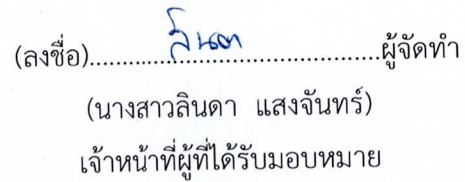 (ลงชื่อ)..........ลินดา..........ผู้จัดทำ
(นางสาวลินดา แสงจันทร์)
เจ้าหน้าที่ผู้ที่ได้รับมอบหมาย